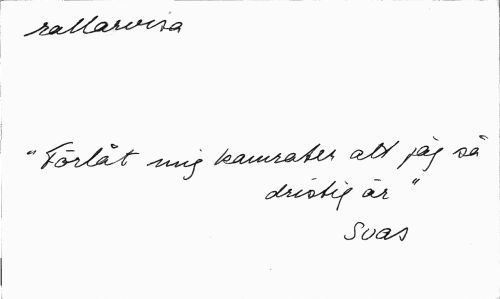 rallarvisa
"Förlåt mig kamrater att jag så
dristig är"
Svas